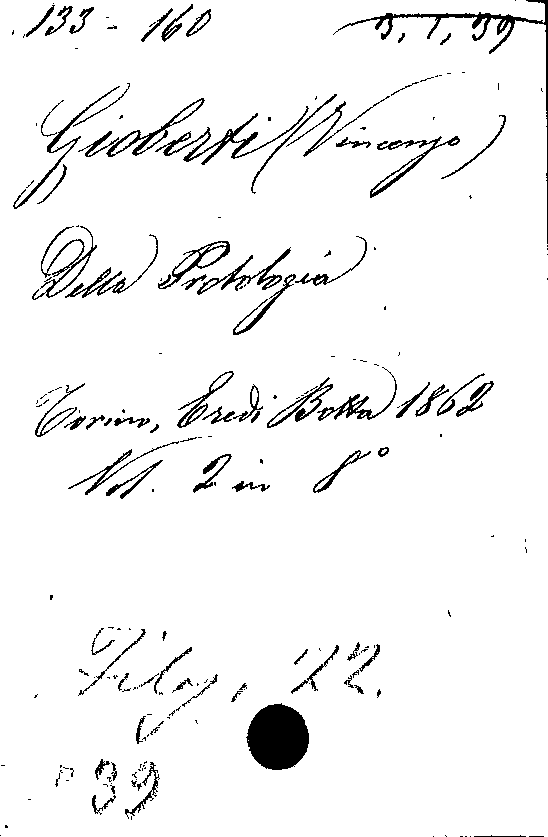 133 - 160 3, 1, 39
Gioberti (Vincenzo)
Della Protologia
Torino, Eredi Botta 1862
Vol. 2 in 8°
Filos, 22.
39